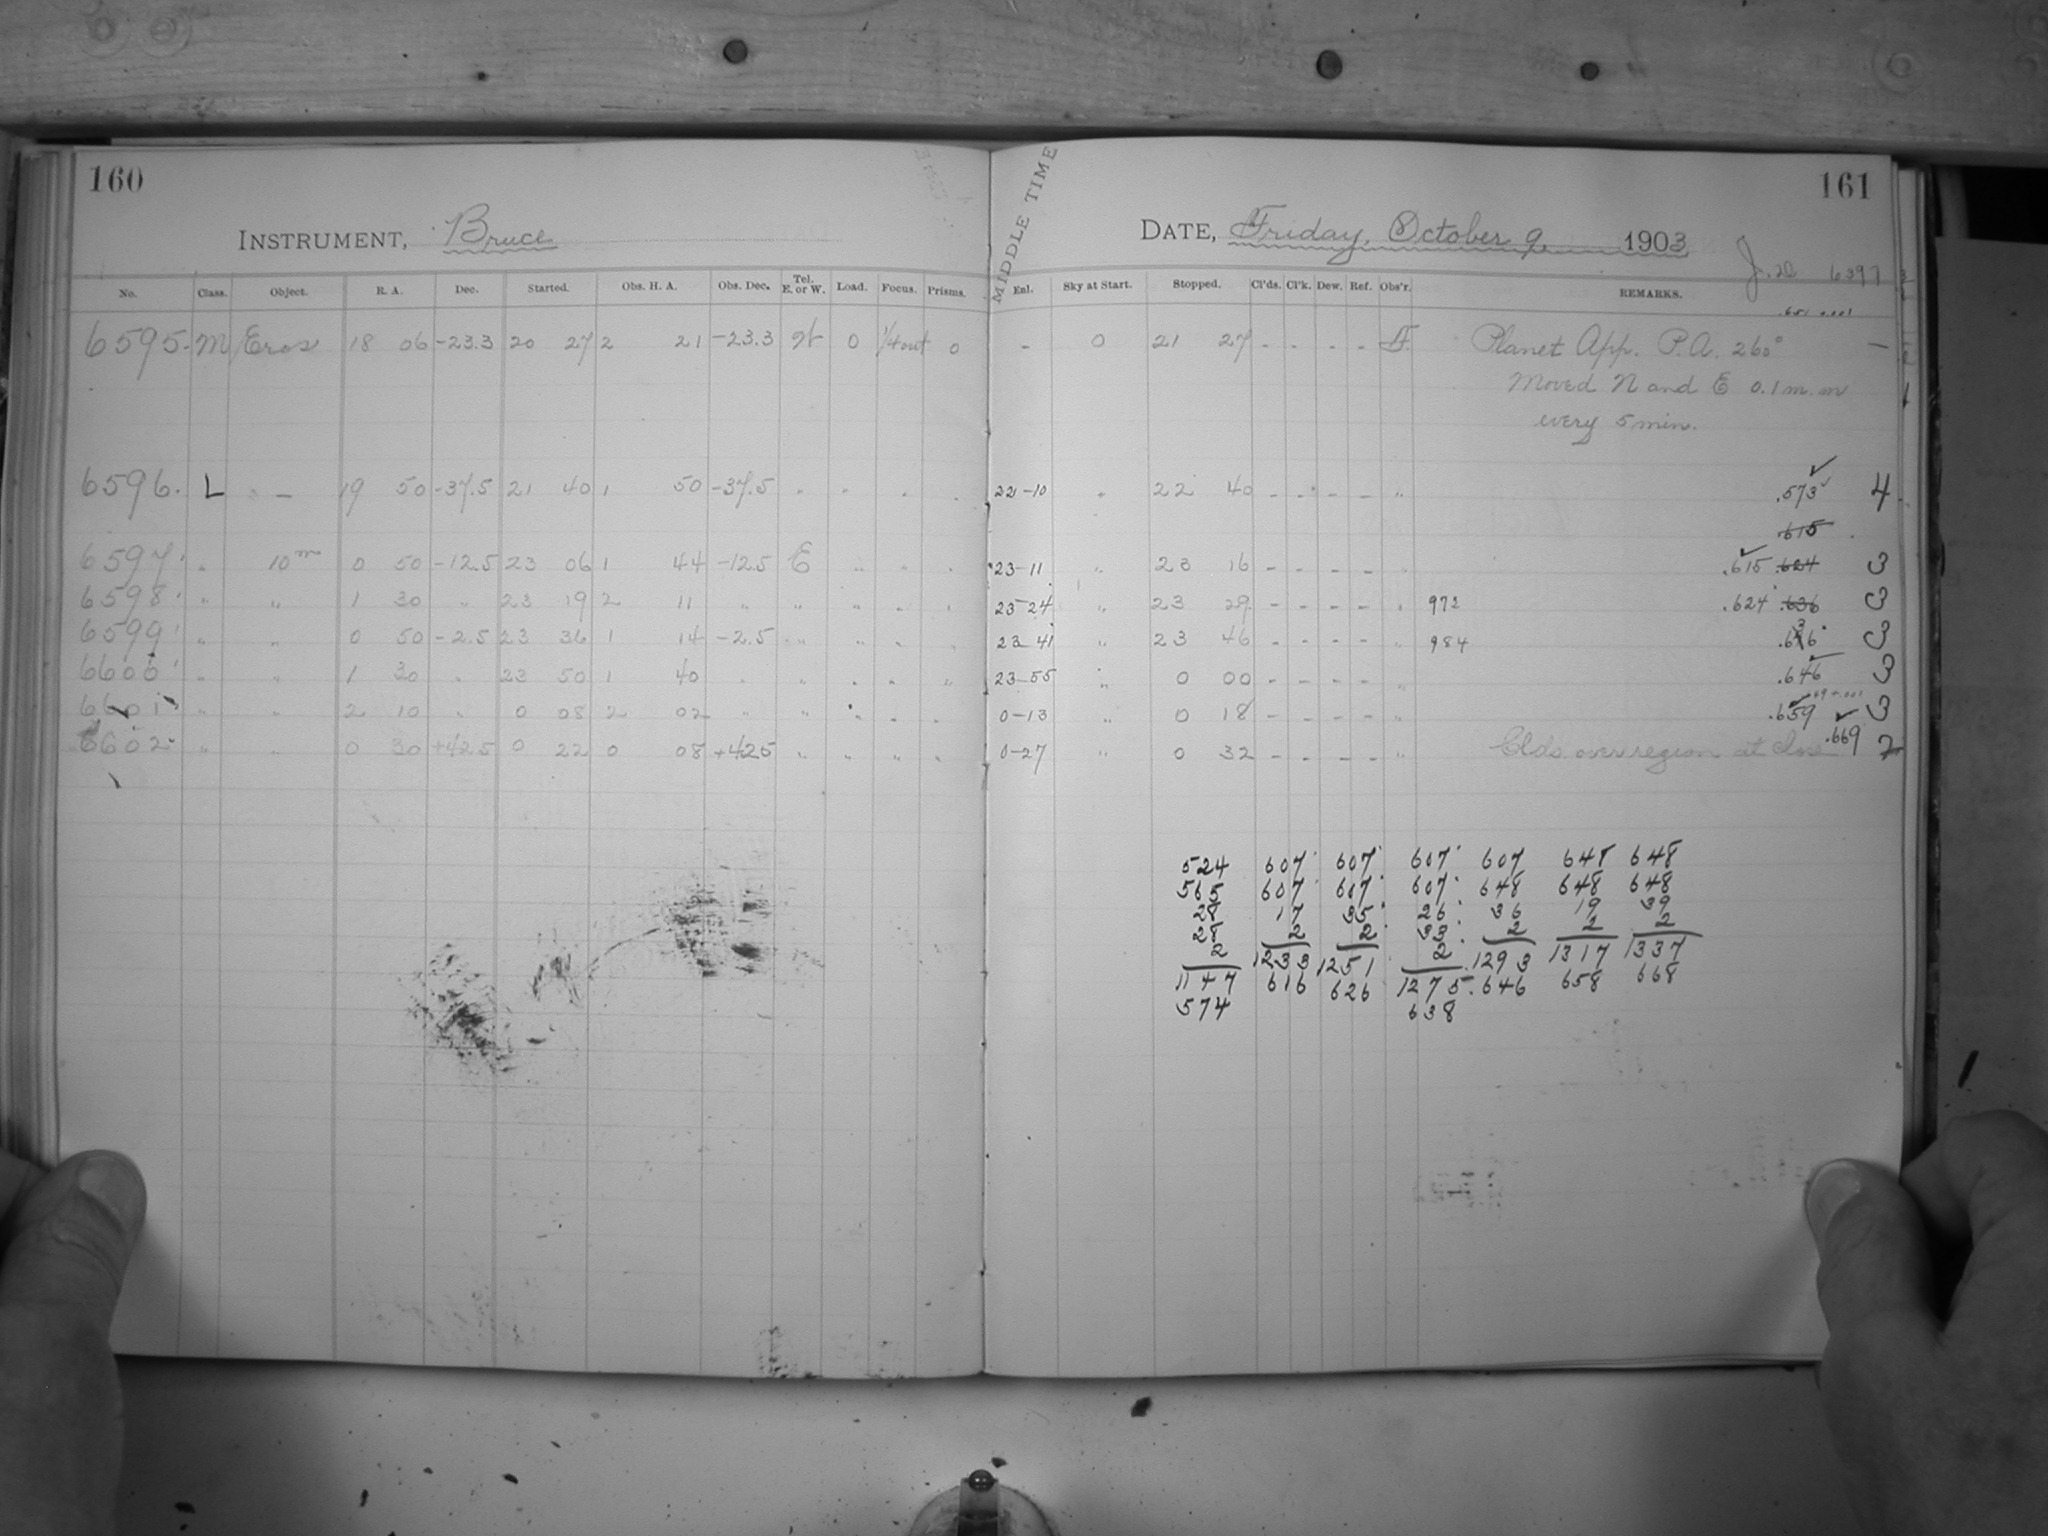 160
161
MIDDLE TIME
INSTRUMENT, Bruce
DATE, Friday, October 9, 1903
J.D. 6397
No. Class. Object. R. A. Dec. Started. Obs. H. A. Obs. Dec. Tel. E. or W. Load. Focus. Prisms. Enl. Sky at Start. Stopped. Cl'ds. Cl'k. Dew. Ref. Obs'r. REMARKS.
6595. M Eros 18 06 -23.3 20 27 2 21 -23.3 W 0 1/4 out 0 - 0 21 27 - - - - Planet App. P.A. 260° -
Moved N and E 0.1 m.m
every 5 min.
6596. L - 19 50 -37.5 21 40 1 50 -37.5 " " " " 22-10 " 22 40 - - - - " .573 4
.615
6597 " 10m 0 50 -12.5 23 06 1 44 -12.5 E " " " 23-11 " 23 16 - - - - " .615 .624 3
6598 " " 1 30 " 23 19 2 11 " " " " " 23-24 " 23 29 - - - - " 972 .624 .636 3
6599 " " 0 50 -2.5 23 36 1 14 -2.5 " " " " 23-41 " 23 46 - - - - " 984 .636 3
6600 " " 1 30 " 23 50 1 40 " " " " " 23-55 " 0 00 - - - - " .646 3
6601 " " 2 10 " 0 08 2 02 " " " " " 0-13 " 0 18 - - - - " .659 3
6602 " " 0 30 +42.5 0 22 0 08 +42.5 " " " " 0-27 " 0 32 - - - - " Clds. over region at close .669 2
524 607 607 607 607 648 648
565 607 607 607 648 648 648
28 17 35 26 36 19 39
28 2 2 33 2 2 2
2 1233 1251 2 1293 1317 1337
1147 616 626 1275 646 658 668
574 638